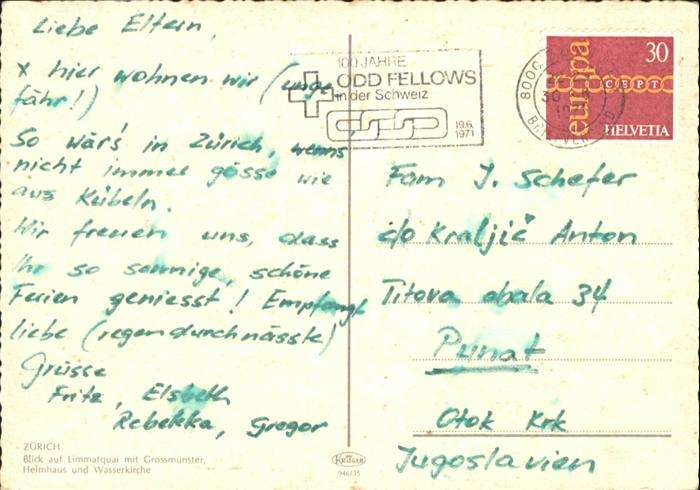 Liebe Eltern,
x hier wohnen wir (unge
fähr!)
So wär's in Zürich, wenns
nicht immer gösse wie
aus Kübeln.
Wir freuen uns, dass
Ihr so sonnige, schöne
Ferien geniesst! Empfangt
liebe (regendurchnässte)
Grüsse
Fritz, Elsbeth
Rebekka, Gregor
ZÜRICH
Blick auf Limmatquai mit Grossmünster,
Helmhaus und Wasserkirche
100 JAHRE
ODD FELLOWS
in der Schweiz
19.6.
1971
8000
30
europa
CEPT
HELVETIA
Fam J. Schefer
c/o Kraljič Anton
Titova obala 34
Punat
Otok Krk
Jugoslavien
Krüger
946/35